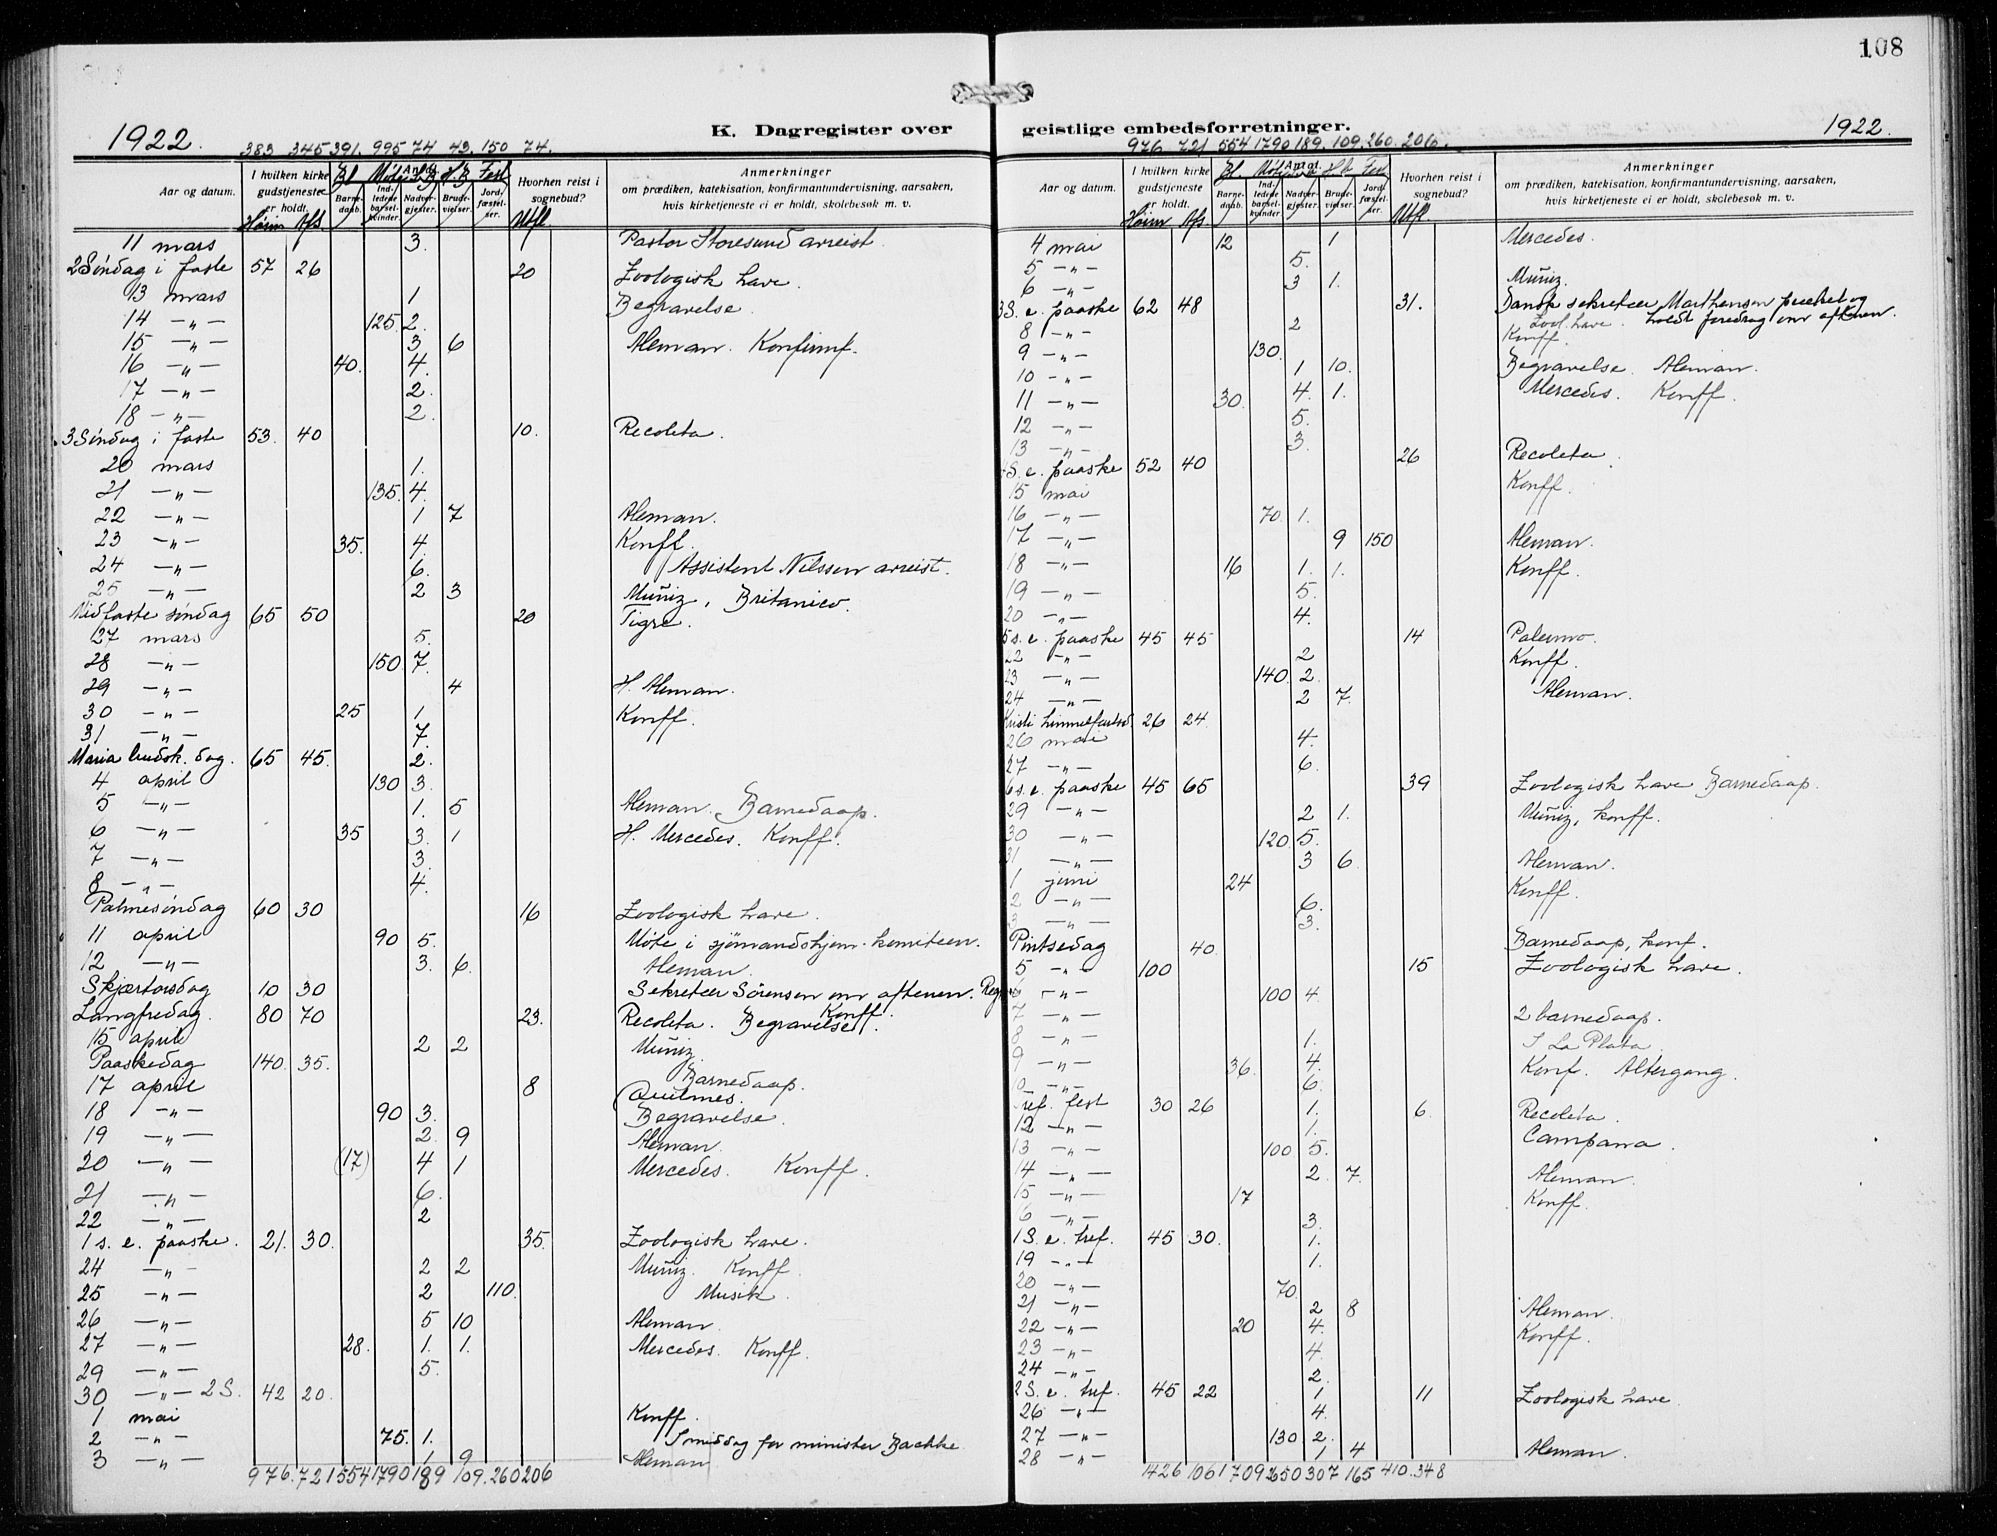 108
K. Dagregister over geistlige embedsforretninger.
1922.
383 345 391. 995 74 43. 150 74.
Aar og datum.
I hvilken kirke gudstjeneste er holdt.
Barnedaab.
Indledede barselkvinder
Antal
Nadvergjester.
Brudevielser.
Jordfæstelser.
Hvorhen reist i sognebud?
Anmerkninger
om prædiken, katekisation, konfirmantundervisning, aarsaken,
hvis kirketjeneste ei er holdt, skolebesøk m. v.
Høim Afs. Bl Møte S.B. H.B Fest Utfl.
11 mars 3. Pastor Storesund avreist.
2 Søndag i faste 57 26 20 Zoologisk have.
13 mars 1 Begravelse.
14 -"- 125 2.
15 -"- 3 6 Aleman. Konfirmf.
16 -"- 40. 4.
17 -"- 2.
18 -"- 2.
3 Søndag i faste 53. 40 10. Recoleta.
20 mars 1.
21 -"- 135. 4.
22 -"- 1 7 Aleman.
23 -"- 35. 4 Konff.
24 -"- 6. Assistent Nilssen avreist.
25 -"- 2 3 Muñiz, Britanico.
Midfaste søndag 65 50 20 Tigre.
27 mars 5.
28 -"- 150 7.
29 -"- 4 H. Aleman.
30 -"- 25 1 Konff.
31 -"- 7.
Maria budsk. dag. 65 45. 2.
4 april 130 3.
5 -"- 1. 5 Aleman. Barnedaap.
6 -"- 35 3. 1 H. Mercedes. Konff.
7 -"- 3.
8 -"- 4.
Palmesøndag 60 30 16 Zoologisk have.
11 april 90 5. Møte i sjömandshjem-komiteen.
12 -"- 3. 6. Aleman.
Skjærtorsdag 10 30 Sekretær Sørensen om aftenen.
Langfredag. 80 70 23. Recoleta. Begravelse. Konff.
15 april 2 2 Muñiz.
Paaskedag 140. 35. Barnedaap.
17 april 8 Quilmes.
18 -"- 90 3. Begravelse.
19 -"- 2. 9 Aleman.
20 -"- (17) 4 1 Mercedes. Konff.
21 -"- 6.
22 -"- 2
1 s. e. paaske. 21. 30. 35. Zoologisk have.
24 -"- 2 2 Muñiz. Konff.
25 -"- 2 110. Musik.
26 -"- 5 10 Aleman.
27 -"- 28. 1. 1. Mercedes. Konff.
29 -"- 5.
30 -"- 2 S. 42 20.
1 mai Konff.
2 -"- 75. 1. I middag for minister Bachke.
3 -"- 1 9 Aleman
976. 721 554 1790 189 109. 260 206
1922.
976 721 554 1790 189. 109. 260. 206.
Aar og datum.
I hvilken kirke gudstjeneste er holdt.
Barnedaab.
Indledede barselkvinder
Antal
Nadvergjester.
Brudevielser.
Jordfæstelser.
Hvorhen reist i sognebud?
Anmerkninger
om prædiken, katekisation, konfirmantundervisning, aarsaken,
hvis kirketjeneste ei er holdt, skolebesøk m. v.
Høim Afs. Bl Møte H.B Fest Utfl.
4 mai 12 1 Mercedes.
5 -"- 5.
6 -"- 3 1. Muñiz.
3 S. e. paaske 62 48 31. Dansk sekretær Marthensen præket og
Zool. have. holdt foredrag om aftenen.
8 -"- 2 Konff.
9 -"- 130.
10 -"- 1 10. Begravelse. Aleman.
11 -"- 30. 4. 1. Mercedes. Konff.
12 -"- 5.
13 -"- 3.
4 S. e. paaske 52 40 26 Recoleta.
15 mai Konff.
16 -"- 70 1.
17 -"- 9 150 Aleman.
18 -"- 16 1. 1. Konff.
19 -"- 5.
20 -"- 4.
5 s. e. paaske 45 45 14 Palermo.
22 -"- 2 Konff.
23 -"- 140. 2.
24 -"- 2 7. Aleman.
Kristi himmelfartsd. 26 24.
26 mai 4.
27 -"- 6.
6 s. e. paaske 45 65 39 Zoologisk have Barnedaap.
29 -"- 2 1. Muñiz, konff.
30 -"- 120. 5.
31 -"- 3 6. Aleman.
1 juni 24 Konff.
2 -"- 6.
3 -"- 3.
Pintsedag 40. Barnedaap, konf.
5 -"- 100 15 Zoologisk have.
6 -"- 100 4.
7 -"- 2 barnedaap.
8 -"- 1. I La Plata.
9 -"- 36. 4. Konf. Altergang.
10 -"- 6.
Tref. fest 30 26 1. 6. Recoleta.
12 -"- 1. Campana.
13 -"- 100 5.
14 -"- 2. 7. Aleman.
15 -"- 17 Konff.
16 -"- 3.
1 S. e. tref. 45 30. 1.
19 -"- 1.
20 -"- 70.
21 -"- 2 8 Aleman.
22 -"- 20 4. Konff.
23 -"- 4.
24 -"- 2.
2 S. e. tref. 45 22 1 11 Zoologisk have.
26 -"- 4.
27 -"- 130 2.
28 -"- 1 4 Aleman.
1426 1061 709 2650 307 165 410. 348